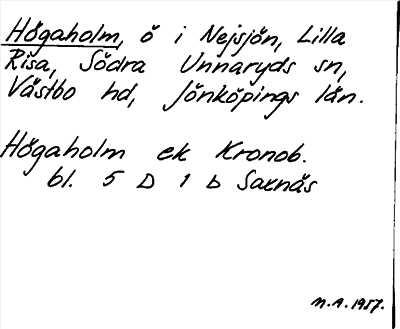 Högaholm, ö i Nejsjön, Lilla
Risa, Södra Unnaryds sn,
Västbo hd, Jönköpings län.
Högaholm ek Kronob.
bl. 5 D 1 b Saxnäs
M.A. 1957.